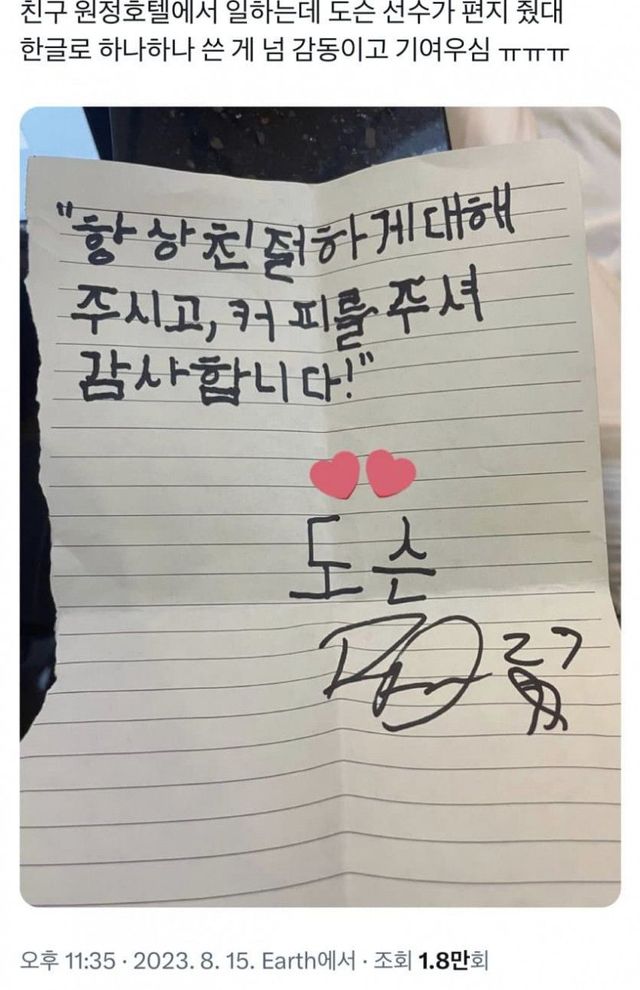 친구 원정호텔에서 일하는데 도슨 선수가 편지 줬대
한글로 하나하나 쓴 게 넘 감동이고 기여우심 ㅠㅠㅠ
"항상 친절하게 대해
주시고, 커피를 주셔
감사합니다!"
도슨
27
오후 11:35 · 2023. 8. 15. Earth에서 · 조회 1.8만회